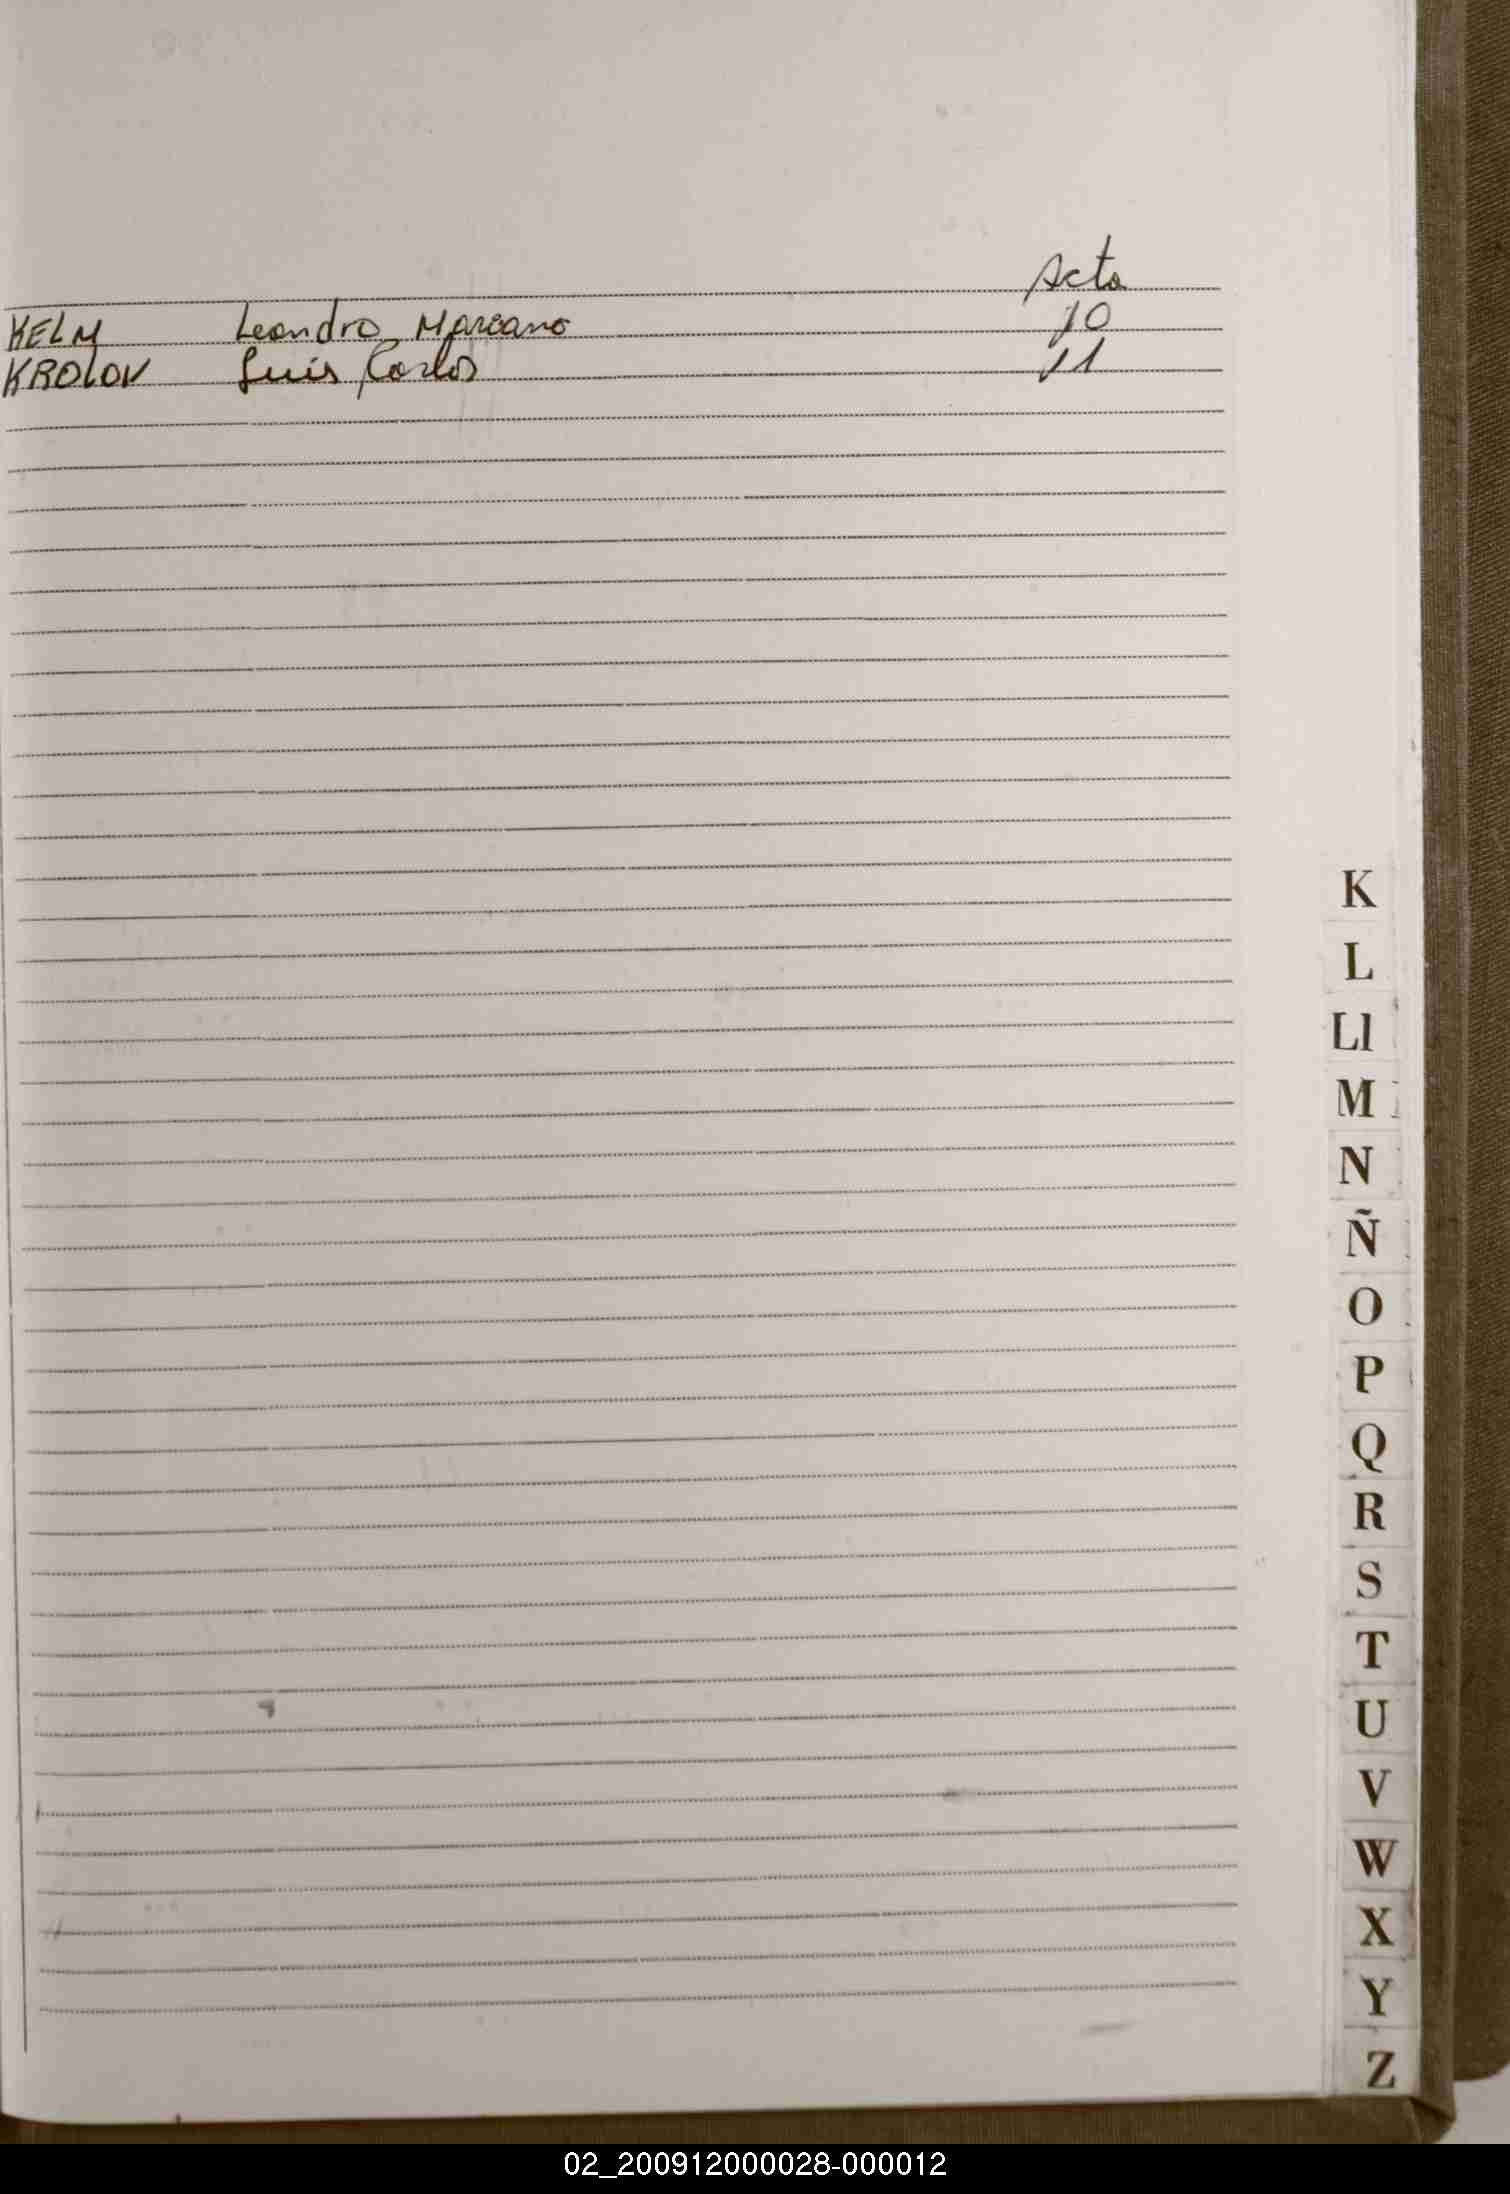 Acta
KELM Leandro Marcano 10
KROLOV Luis Carlos 11
K
L
Ll
M
N
Ñ
O
P
Q
R
S
T
U
V
W
X
Y
Z
02_200912000028-000012